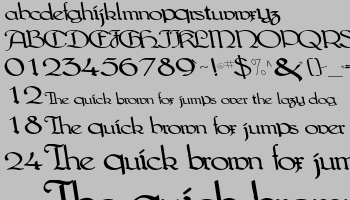 abcdefghijklmnopqrstuvwxyz
ABCDEFGHIJKLMNOPQRS
0123456789
12 The quick brown fox jumps over the lazy dog.
18 The quick brown fox jumps over
24 The quick brown fox jum
The quick brown